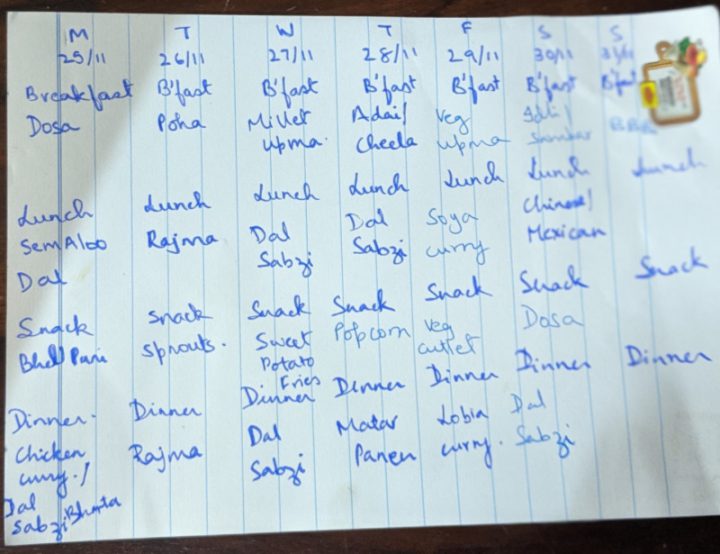 M T W T F S S
25/11 26/11 27/11 28/11 29/11 30/11 31/11
Breakfast B'fast B'fast B'fast B'fast B'fast B'fast
Dosa Poha Millet Adai/ Veg Idli/
Upma. Cheela Upma Sambar
Lunch Lunch Lunch Lunch Lunch Lunch Lunch
Sem Aloo Rajma Dal Dal Soya Chinese/
Dal Sabzi Sabzi curry Mexican
Snack Snack Snack Snack Snack Snack Snack
Bhel Puri Sprouts. Sweet Popcorn Veg Dosa
Potato cutlet
Fries
Dinner. Dinner Dinner Dinner Dinner Dinner Dinner
Chicken Rajma Dal Matar Lobia Dal
curry./ Sabzi Paneer curry. Sabzi
Dal
Sabzi Bharta